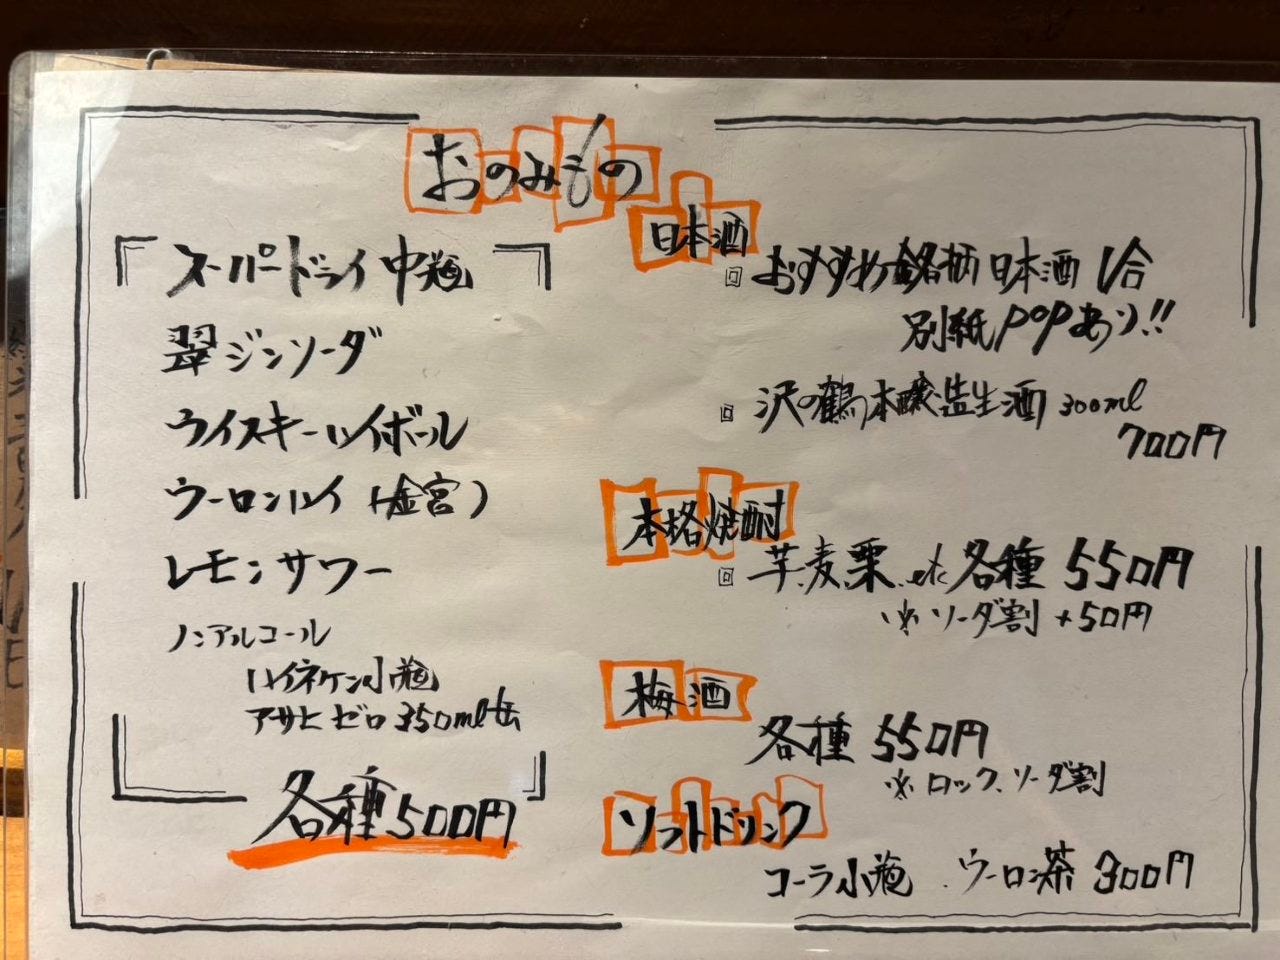 おのみもの
スーパードライ 中瓶
翠ジンソーダ
ウイスキーハイボール
ウーロンハイ (金宮)
レモンサワー
ノンアルコール
ハイネケン小瓶
アサヒ ゼロ 350ml缶
各種500円
日本酒
おすすめ銘柄 日本酒 1合
別紙POPあり!!
沢の鶴本醸造生酒 300ml
700円
本格焼酎
芋.麦.栗.etc 各種 550円
※ソーダ割 +50円
梅酒
各種 550円
※ロック.ソーダ割
ソフトドリンク
コーラ小瓶 . ウーロン茶 300円